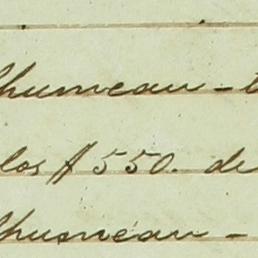 Chumeau -
los $550. de
Chumeau -